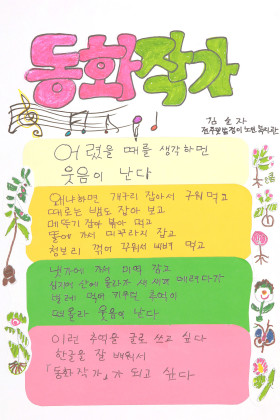 동화작가
김순자
어렸을 때를 생각하면
웃음이 난다
왜냐하면 개구리 잡아서 구워 먹고
때로는 뱀도 잡아 보고
메뚜기 잡아 볶아 먹고
돌아 가서 미꾸라지 잡고
청보리 꺾어 꾸워서 비벼 먹고
냇가에 가서 미역 감고
심지어 산에 올라가 새 새끼 데려다가
벌레 먹여 키우던 추억이
떠올라 웃음이 난다
이런 추억을 글로 쓰고 싶다
한글을 잘 배워서
「동화작가」가 되고 싶다